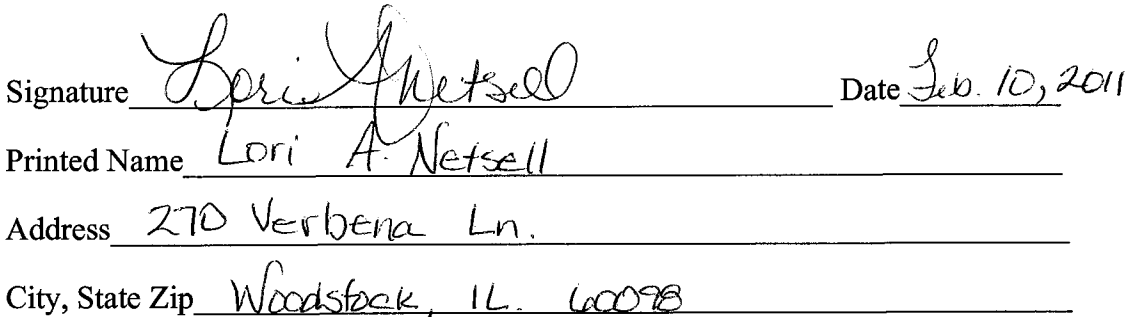 Signature Lori A Netsell Date Feb. 10, 2011
Printed Name Lori A. Netsell
Address 270 Verbena Ln.
City, State Zip Woodstock, IL. 60098